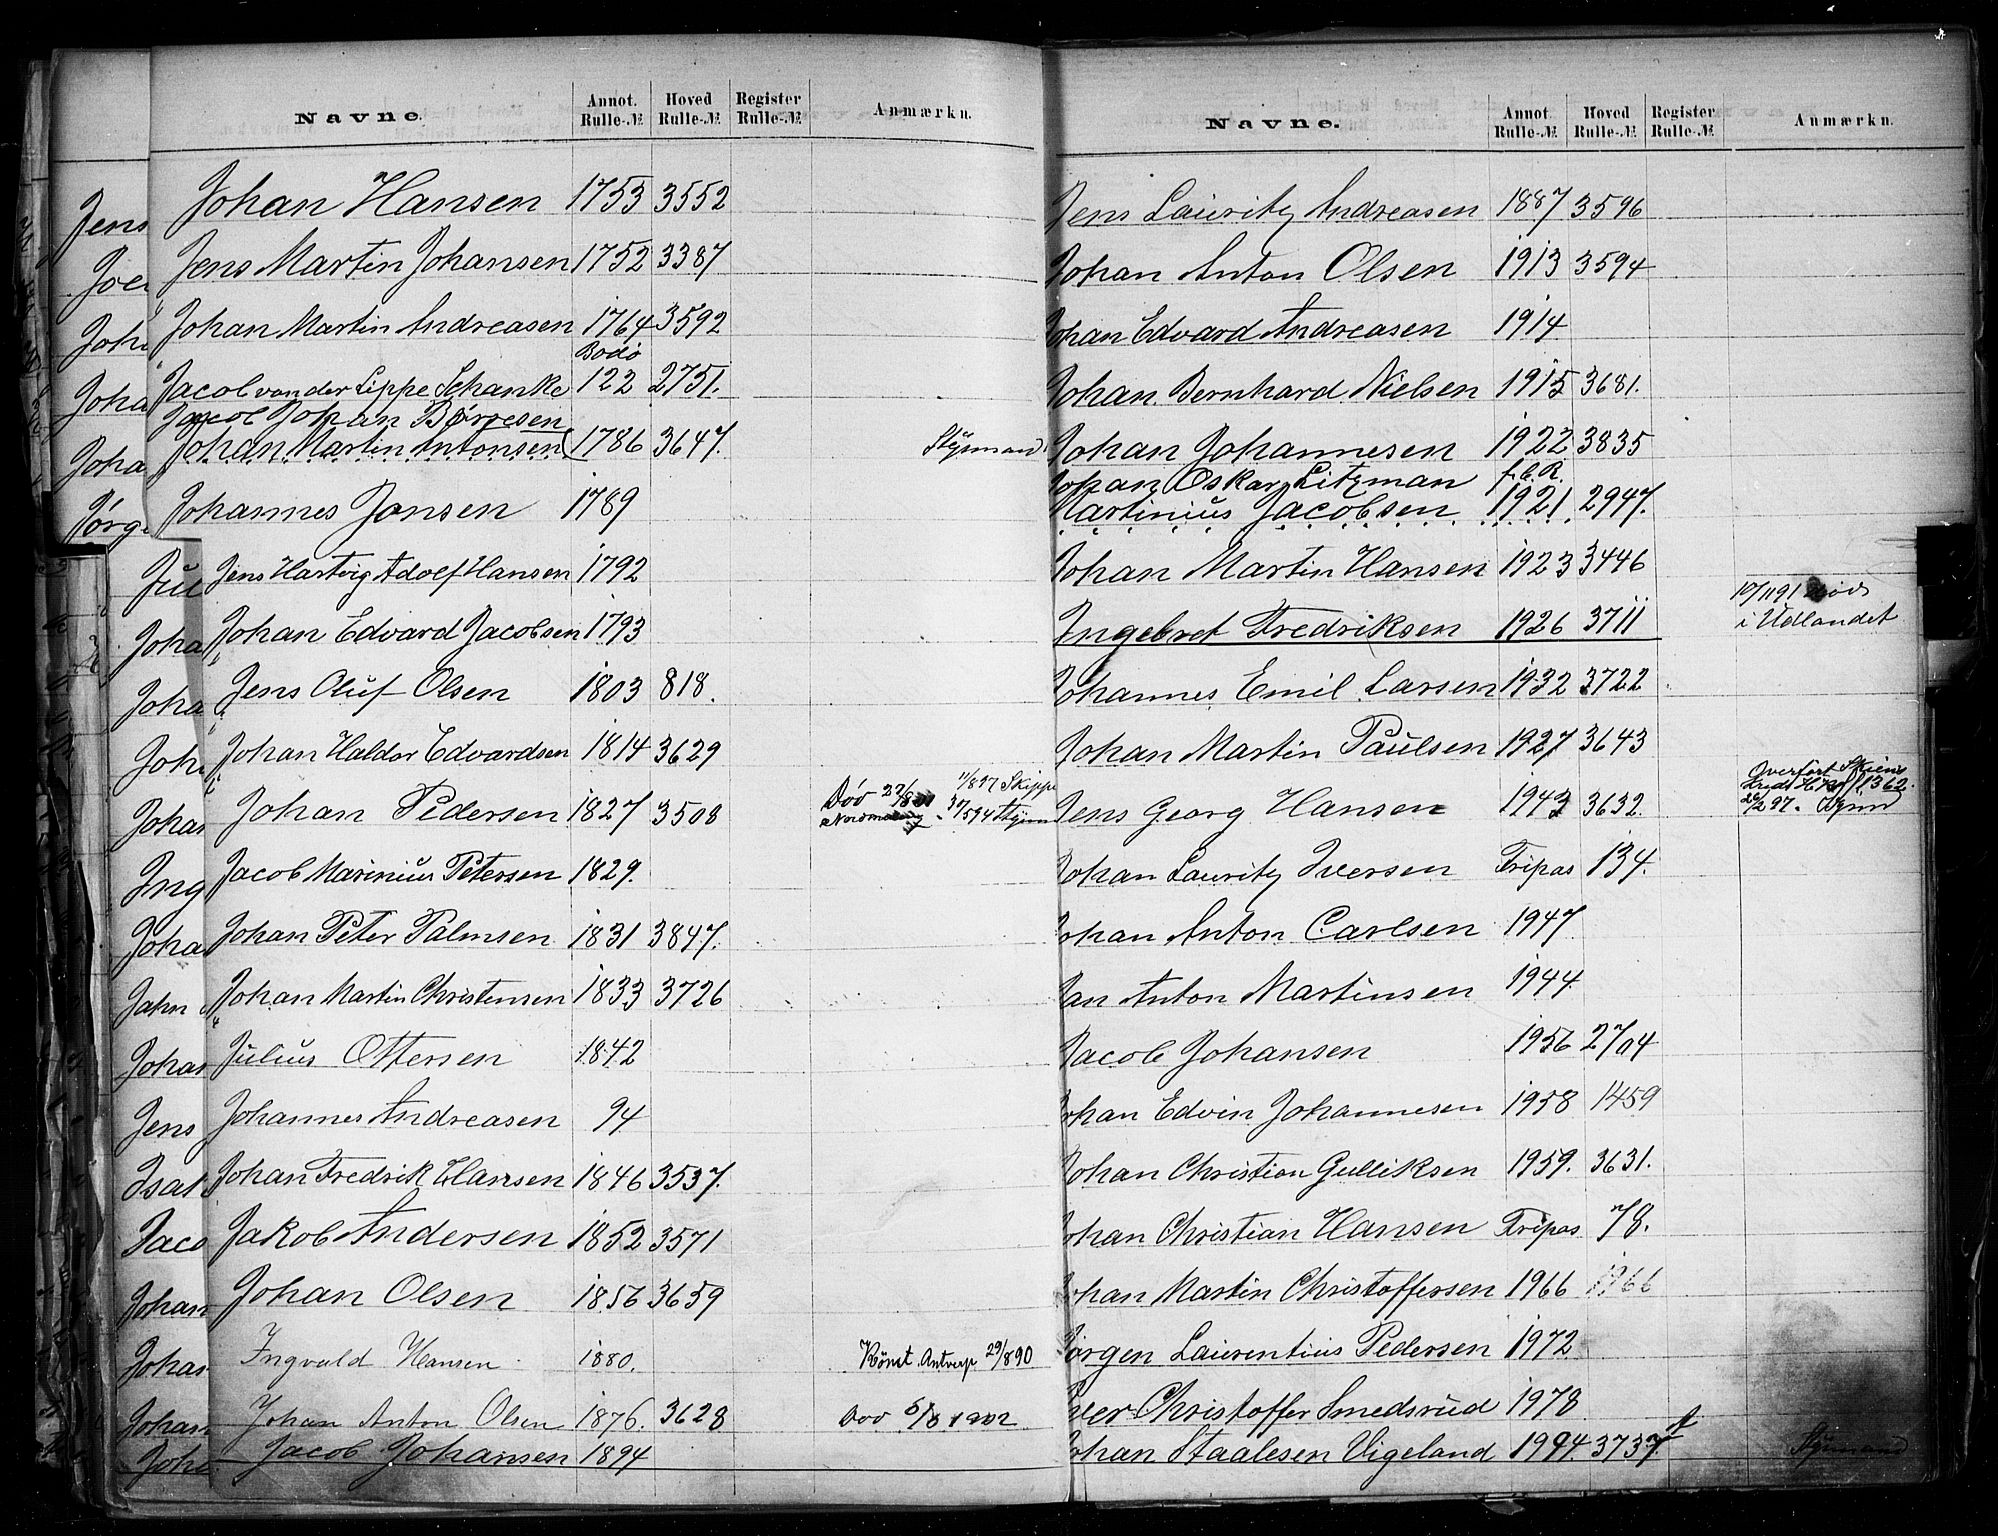 Navne. Annot. Rulle-№ Hoved Rulle-№ Register Rulle-№ Anmærkn.
Johan Hansen 1753 3552
Jens Martin Johansen 1752 3387
Johan Martin Andreasen 1764 3592
Bodö
Jacob van der Lippe Schanke 122 2751.
Jacob Johan Börresen
Johan Martin Antonsen 1786 3647. Styrmand
Johannes Jansen 1789
Jens Hartvig Adolf Hansen 1792
Johan Edvard Jacobsen 1793
Jens Oluf Olsen 1803 818.
Johan Haldor Edvardsen 1814 3629
Johan Pedersen 1827 3508 Döv
Jacob Marinius Petersen 1829.
Johan Peter Palmsen 1831 3847.
Johan Martin Christensen 1833 3726
Julius Ottersen 1842
Johannes Andreasen 94
Johan Fredrik Hansen 1846 3537.
Jakob Andersen 1852 3571
Johan Olsen 1856 3659
Ingvald Hansen 1880. Rönt. Antverp 29/8 90
Johan Anton Olsen 1876. 3628 Dov 5/8 1902
Jacob Johansen 1894
Jens
Joe
Joh
Joha
Joha
Jörge
Jul
Joha
Joha
Joh
Johan
Ing
Joha
Jahn
Johan
Jens
Isak
Jaco
Johan
Johan
Johan
Joha
Navne. Annot Rulle-№ Hoved Rulle-№ Register Rulle-№ Anmærkn.
Jens Lauritz Andreasen 1887 3596
Johan Anton Olsen 1913 3594
Johan Edvard Andreasen 1914
Johan Bernhard Nielsen 1915 3681.
Johan Johannesen 1922 3835
Johan Oskar Litzman f. C. R.
Martinius Jacobsen 1921 2947.
Johan Martin Hansen 1923 3446
Ingebret Fredriksen 1926 3711 i Udlandet
Johannes Emil Larsen 1932 3722
Johan Martin Paulsen 1927 3643
Overfört Skiens
Jens Georg Hansen 1943 3632.
Johan Lauritz Iversen Fripas 134.
Johan Anton Carlsen 1947
Jan Anton Martinsen 1944
Jacob Johansen 1956 2704
Johan Edvin Johannesen 1958 1459
Johan Christian Gulliksen 1959. 3631.
Johan Christian Hansen Fripas 78.
Johan Martin Christoffersen 1966 1966
Jörgen Laurentius Pedersen 1972
Iver Christoffer Smedsrud 1978
Johan Staalesen Vigeland 1994. 3737. Styrmand